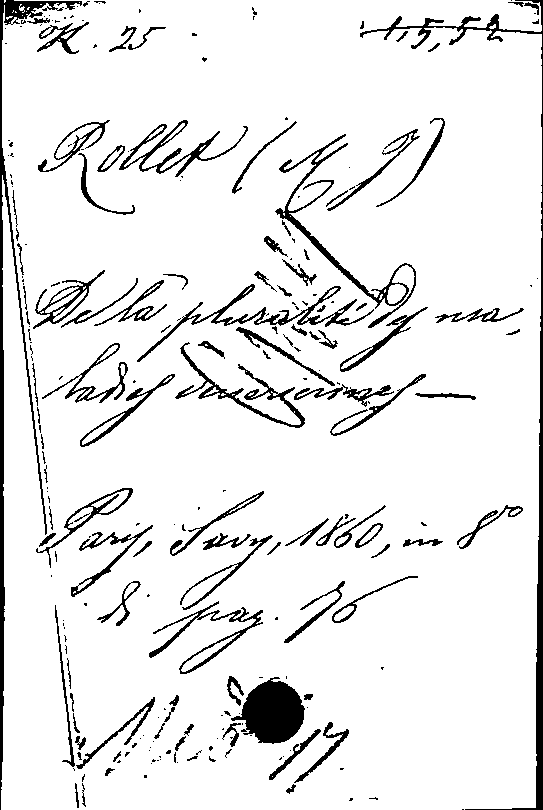 K. 25
1,5,52
Rollet (M J)
De la pluralité des ma,
ladies vénériennes —
Paris, Savy, 1860, in 8º
di pag. 76
17